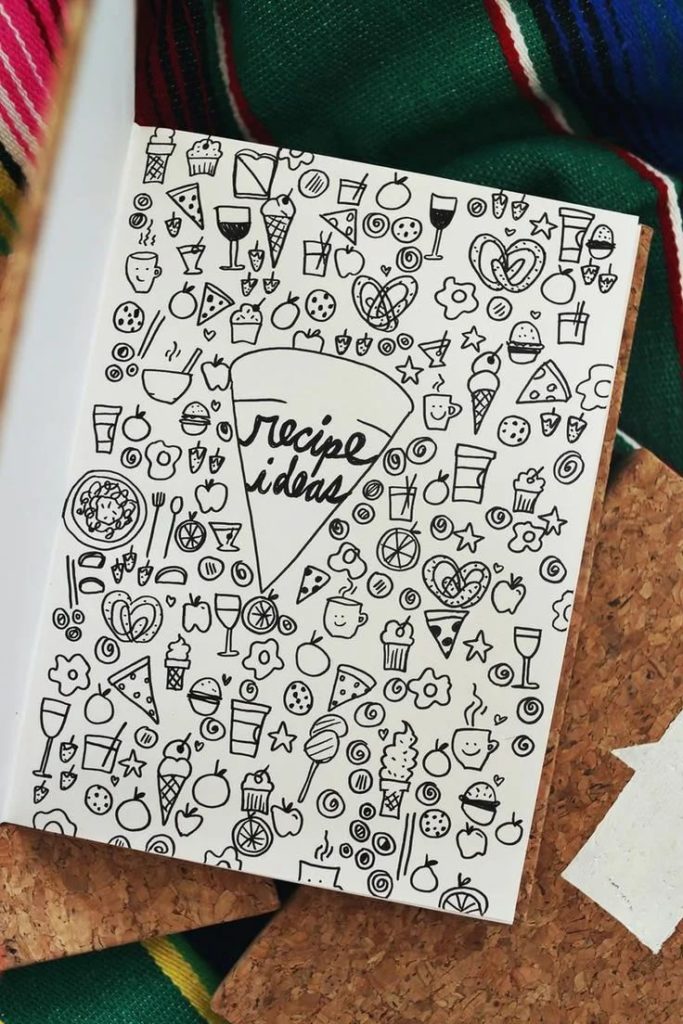 recipe
ideas